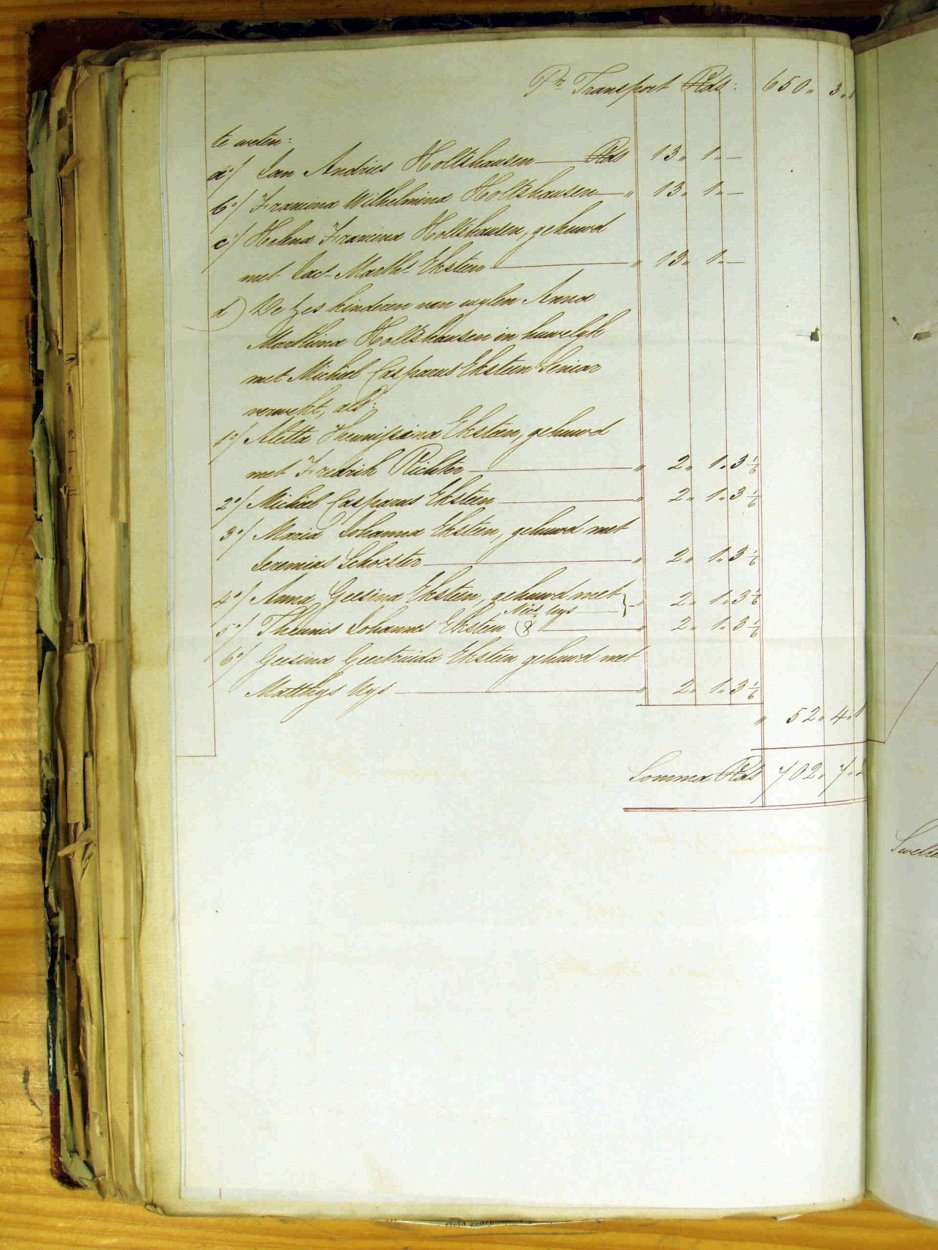 Pr Transport Rds: 650. 3.
te weten:
a°/ Jan Andries Holtzhausen — Rds 13. 1. —
b°/ Francina Wilhelmina Holtzhausen — " 13. 1. —
c°/ Helena Francina Holtzhausen, gehuwd
met Jacs. Marths. Eksteen — " 13. 1. —
d) De Zes kinderen van wylen Anna
Marthina Holtzhausen in huwelyk
met Michiel Casparus Eksteen Senior
verwekt, als:
1°/ Aletta Theunissina Eksteen, gehuwd
met Fredrik Richter — " 2. 1. 3 1/6
2°/ Michiel Casparus Eksteen — " 2. 1. 3 1/6
3°/ Maria Johanna Eksteen, gehuwd met
Jeremias Schoester — " 2. 1. 3 1/6
4°/ Anna Gesina Eksteen, gehuwd met } " 2. 1. 3 1/6
Uys
5°/ Theunis Johannes Eksteen — " 2. 1. 3 1/6
6°/ Gesina Geertruida Eksteen gehuwd met
Matthys Uys — " 2. 1. 3 1/6
" 52. 4.
Somma Rds 702. 7.